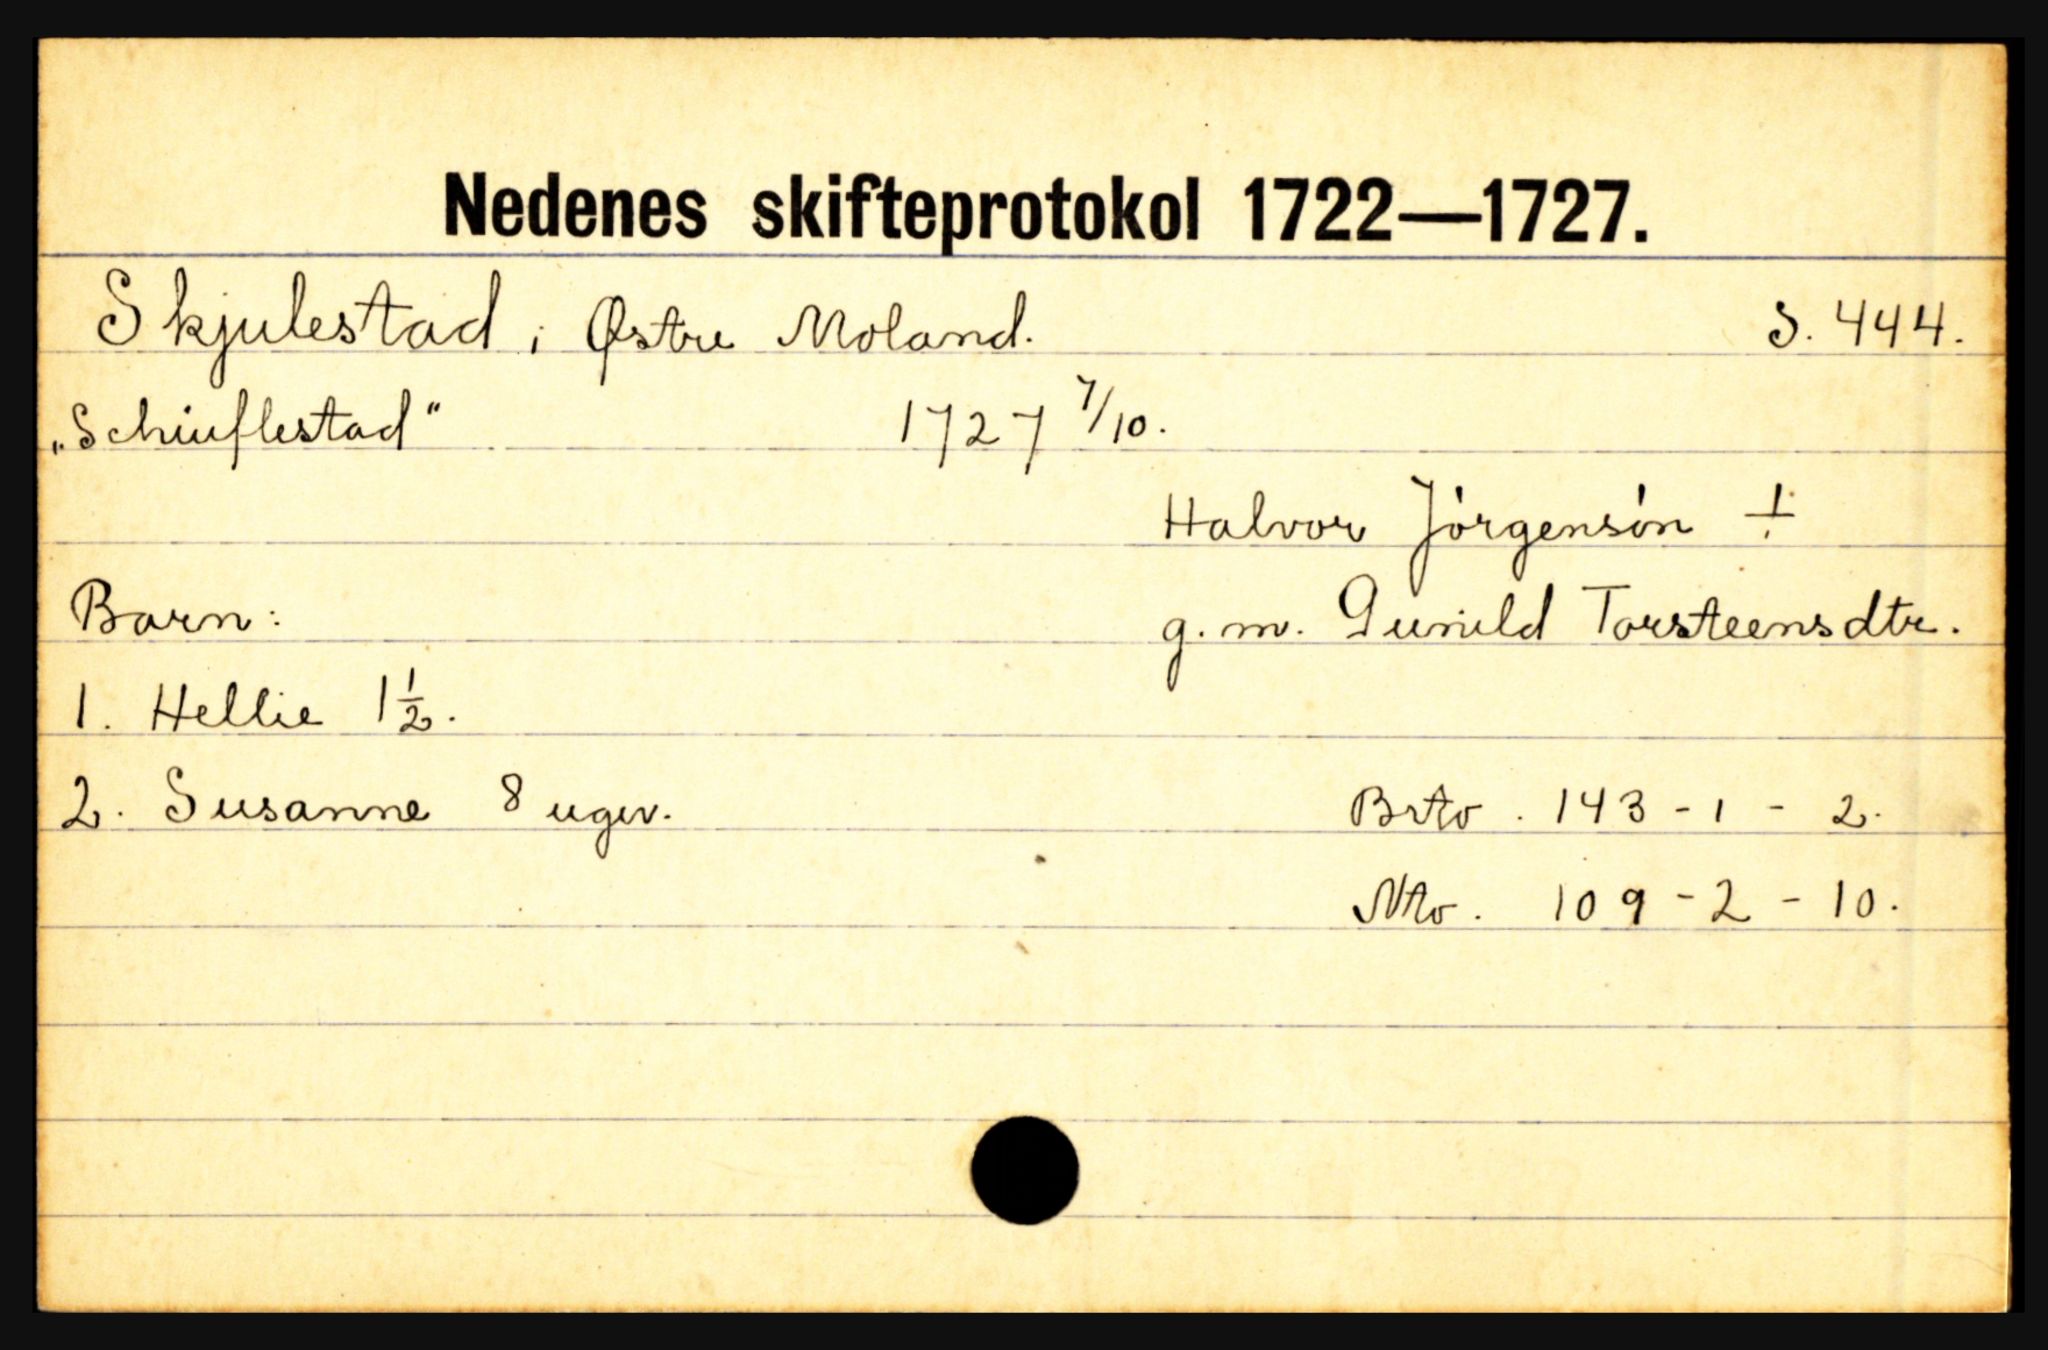 Nedenes skifteprotokol 1722—1727.
Skjulestad i Østre Moland. S. 444.
„Schiuflestad“ 1727 7/10.
Halvor Jörgensön ✝
Barn: g. m. Gunild Torsteensdtr.
1. Hellie 1½.
2. Susanne 8 uger. Brto. 143 - 1 - 2.
Nto. 109 - 2 - 10.